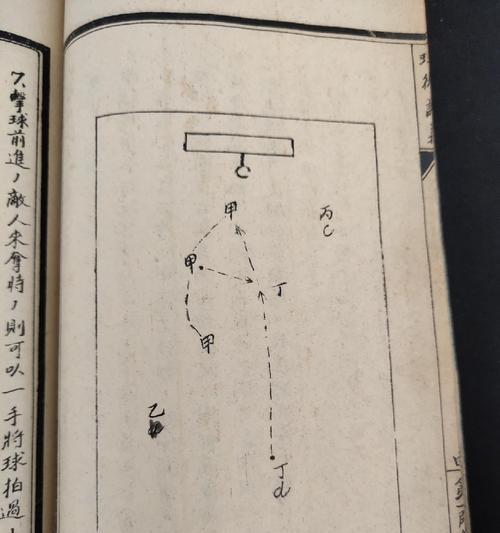 7、擊球前進,敵人來奪時,則可以一手將球拍過
甲
丙
C
甲
丁
甲
乙
丁
d